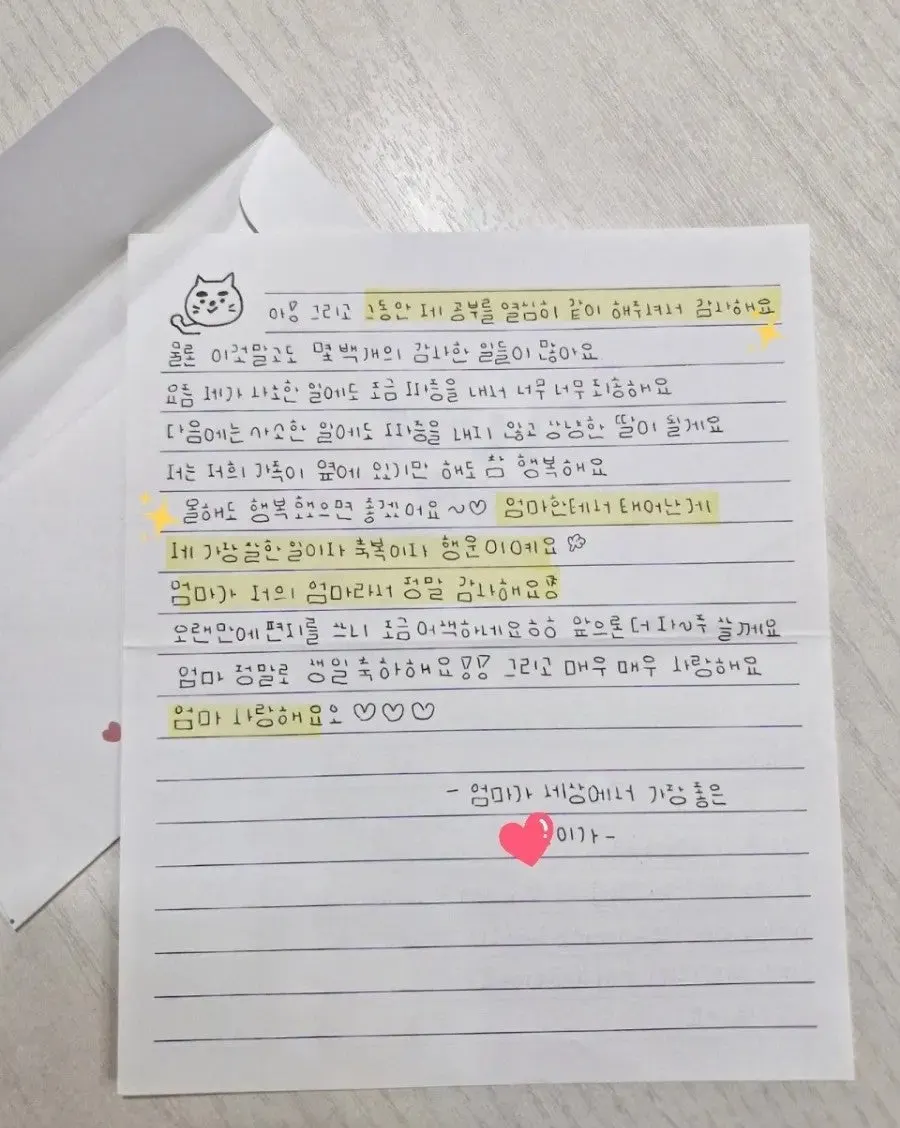 아! 그리고 그동안 제 공부를 열심히 같이 해주셔서 감사해요
물론 이것말고도 몇백개의 감사한 일들이 많아요
요즘 제가 사소한 일에도 조금 짜증을 내서 너무 너무 죄송해요
다음에는 사소한 일에도 짜증을 내지 않고 상냥한 딸이 될게요
저는 저희 가족이 옆에 있기만 해도 참 행복해요
올해도 행복했으면 좋겠어요~♡ 엄마한테서 태어난게
제 가장 잘한 일이자 축복이자 행운이예요
엄마가 저의 엄마라서 정말 감사해요
오랜만에 편지를 쓰니 조금 어색하네요ㅎㅎ 앞으론 더 자~주 쓸께요
엄마 정말로 생일 축하해요!! 그리고 매우 매우 사랑해요
엄마 사랑해요오 ♡♡♡
- 엄마가 세상에서 가장 좋은
이가 -